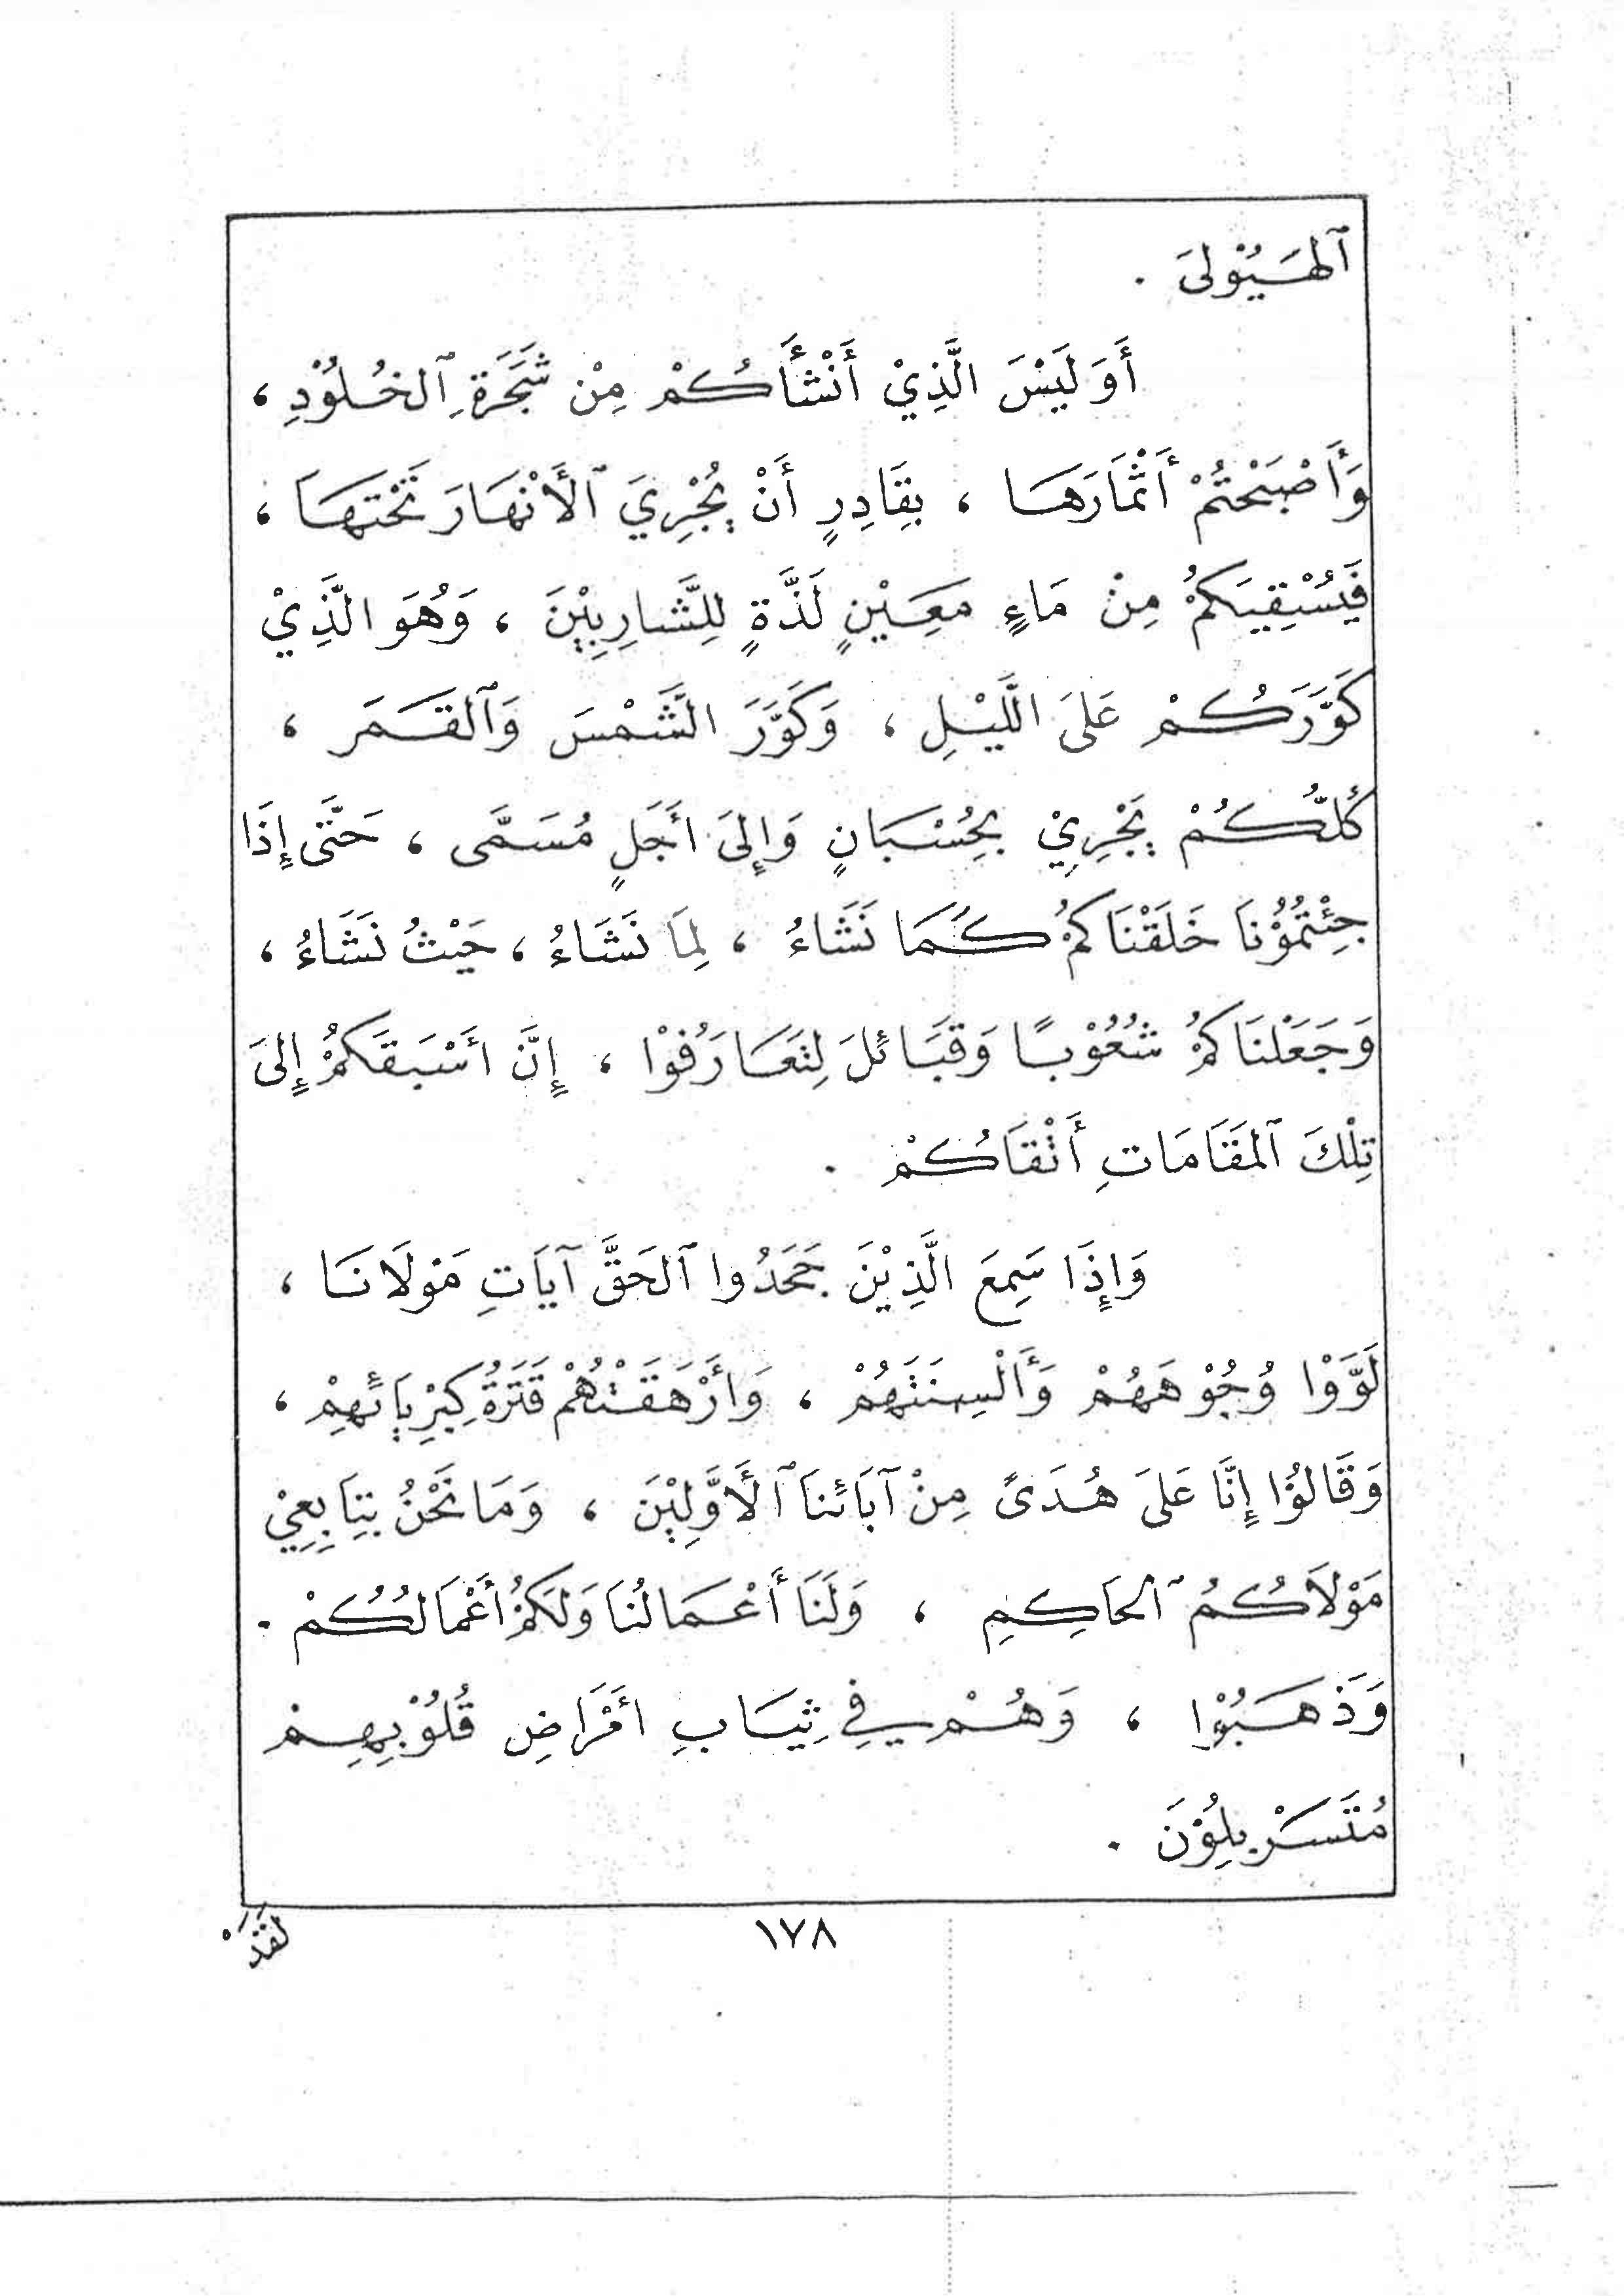 ٱلهَيُوْلىَ .
أَوَ لَيْسَ الَّذِيْ أَنْشَأَكُمْ مِنْ شَجَرَةِ ٱلخُلُوْدِ ،
وَأَصْبَحْتُمْ أَثْمَارَهَا ، بِقَادِرٍ أَنْ يُجْرِيَ ٱلأَنْهَارَ تَحْتَهَا ،
فَيُسْقِيَكُمْ مِنْ مَاءٍ مَعِيْنٍ لَذَّةٍ لِلشَّارِبِيْنَ ، وَهُوَ الَّذِيْ
كَوَّرَكُمْ عَلىَ اللَّيْلِ ، وَكَوَّرَ الشَّمْسَ وَٱلقَمَر ،
كُلُّكُمْ يَجْرِيْ بِحُسْبَانٍ وَإِلىَ أَجَلٍ مُسَمَّى ، حَتَّى إِذَا
جِئْتُمُوْنَا خَلَقْنَاكُمْ كَمَا نَشَاءُ ، لِمَا نَشَاءُ ، حَيْثُ نَشَاءُ ،
وَجَعَلْنَاكُمْ شُعُوْبًا وَقَبَائِلَ لِتَعَارَفُوْا ، إِنَّ أَسْبَقَكُمْ إِلىَ
تِلْكَ ٱلمَقَامَاتِ أَتْقَاكُمْ .
وَإِذَا سَمِعَ الَّذِيْنَ جَحَدُوا ٱلحَقَّ آيَاتِ مَوْلَانَا ،
لَوَّوْا وُجُوْهَهُمْ وَأَلْسِنَتَهُمْ ، وَأَرْهَقَتْهُمْ قَتَرَةُ كِبْرِيَائِهِمْ ،
وَقَالُوْا إِنَّا عَلىَ هُدَىً مِنْ آبَائِنَا ٱلأَوَّلِيْنَ ، وَمَا نَحْنُ بِتَابِعِيْ
مَوْلاَكُمُ ٱلحَاكِمِ ، وَلَنَا أَعْمَالُنَا وَلَكُمْ أَعْمَالُكُمْ .
وَذَهَبُوْا ، وَهُمْ فِي ثِيَابِ أَمْرَاضِ قُلُوْبِهِمْ
مُتَسَرْبِلُوْنَ .
١٧٨
لَقَدْ